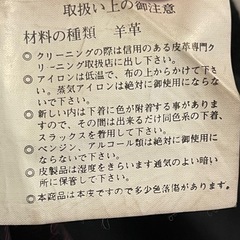 取扱い上の御注意
材料の種類　羊革
◎クリーニングの際は信用のある皮革専門ク
リーニング取扱店に出し下さい。
◎アイロンは低温で、布の上からかけて下さ
い。蒸気アイロンは絶対に御使用にならな
いで下さい。
◎新しい内は下着に色が附着する事がありま
すので、その間は出来るだけ同色系の下着、
スラックスを着用して下さい。
◎ベンジン、アルコール類は絶対に御使用に
ならないで下さい。
◎皮製品は湿度をきらいます通気のよい暗い
所に保管して下さい。
◎本商品は本皮ですので多少色落傷があります。